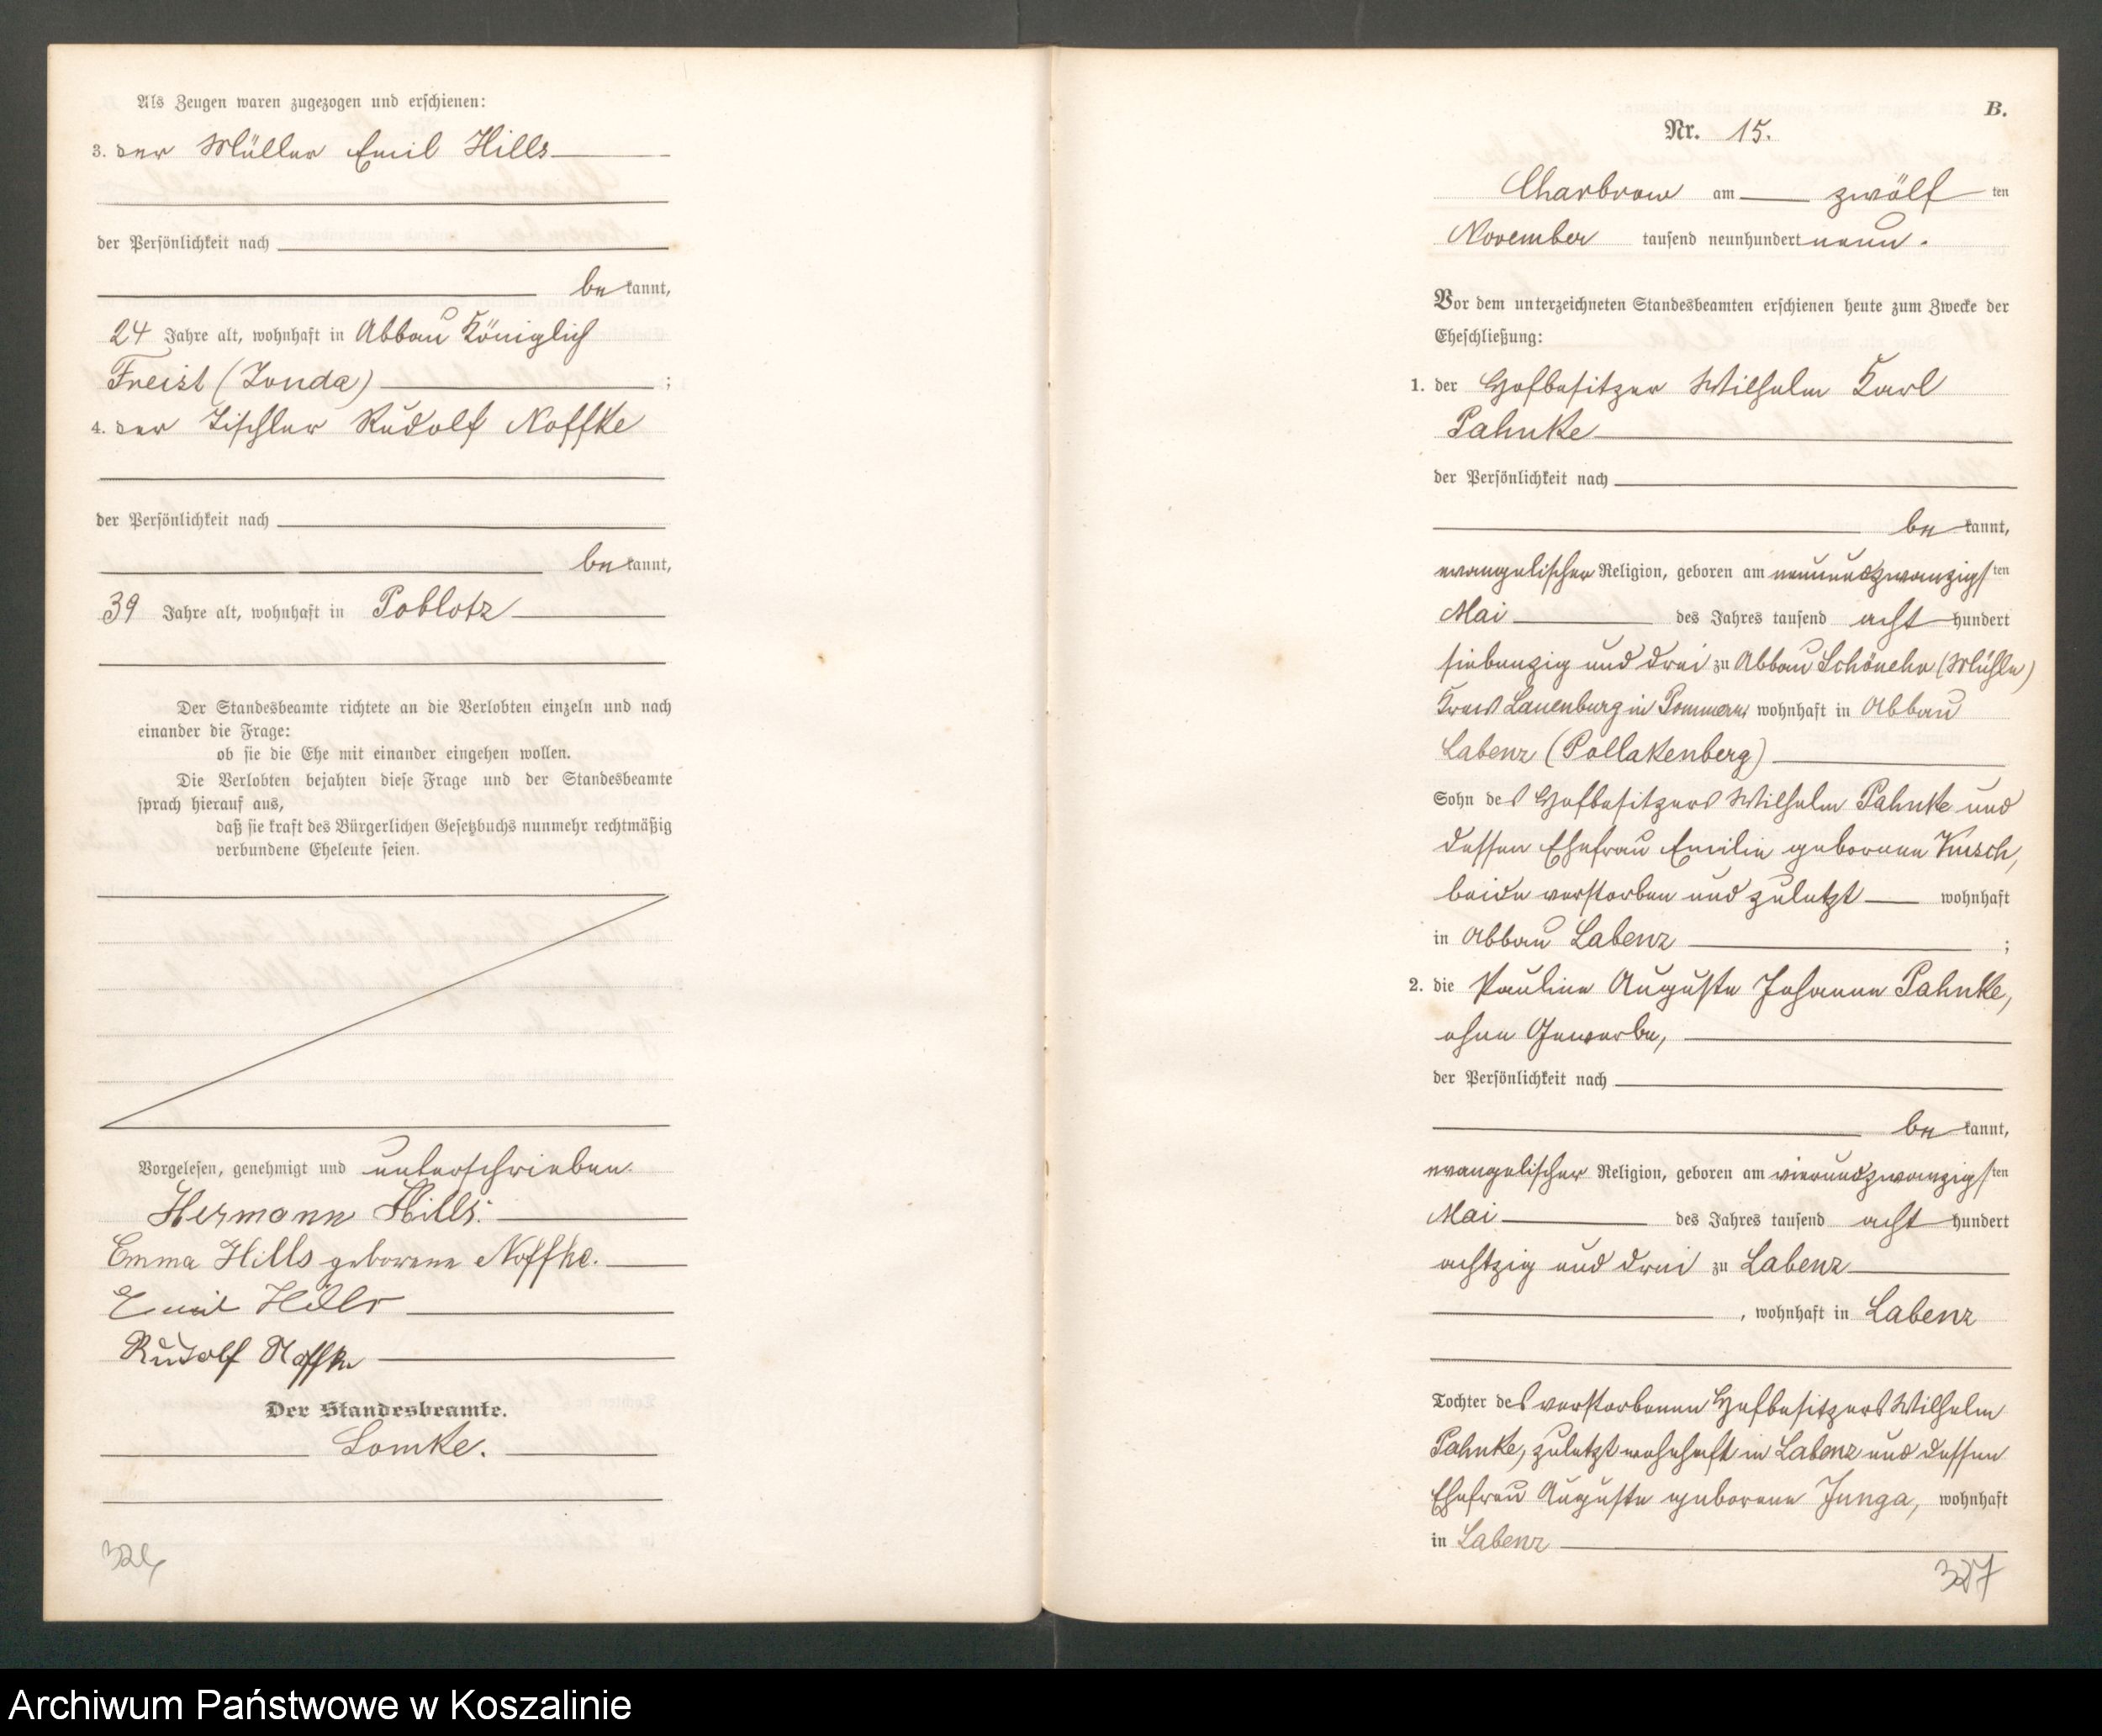 Als Zeugen waren zugezogen und erschienen:
3. der Müller Emil Hills
der Persönlichkeit nach
bekannt,
24 Jahre alt, wohnhaft in Abbau Königlich
Freist (Zonda);
4. der Tischler Rudolf Noffke
der Persönlichkeit nach
bekannt,
39 Jahre alt, wohnhaft in Poblotz
Der Standesbeamte richtete an die Verlobten einzeln und nach
einander die Frage:
ob sie die Ehe mit einander eingehen wollen.
Die Verlobten bejahten diese Frage und der Standesbeamte
sprach hierauf aus,
daß sie kraft des Bürgerlichen Gesetzbuchs nunmehr rechtmäßig
verbundene Eheleute seien.
Vorgelesen, genehmigt und unterschrieben.
Hermann Hills.
Emma Hills geborene Noffke.
Emil Hills
Rudolf Noffke
Der Standesbeamte.
Lomke.
B.
Nr. 15.
Charbrow am zwölf ten
November tausend neunhundert neun.
Vor dem unterzeichneten Standesbeamten erschienen heute zum Zwecke der
Eheschließung:
1. der Hofbesitzer Wilhelm Karl
Pahnke
der Persönlichkeit nach
bekannt,
evangelischer Religion, geboren am neunundzwanzigsten
Mai des Jahres tausend acht hundert
siebenzig und drei zu Abbau Schönehr (Mühle)
Kreis Lauenburg in Pommern, wohnhaft in Abbau
Labenz (Pollakenberg)
Sohn des Hofbesitzers Wilhelm Pahnke und
dessen Ehefrau Emilie geborene Kusch,
beide verstorben und zuletzt wohnhaft
in Abbau Labenz ;
2. die Pauline Auguste Johanne Pahnke,
ohne Gewerbe,
der Persönlichkeit nach
bekannt,
evangelischer Religion, geboren am vierundzwanzigsten
Mai des Jahres tausend acht hundert
achtzig und drei zu Labenz
, wohnhaft in Labenz
Tochter des verstorbenen Hofbesitzers Wilhelm
Pahnke, zuletzt wohnhaft in Labenz und dessen
Ehefrau Auguste geborene Junga, wohnhaft
in Labenz
327
Archiwum Państwowe w Koszalinie